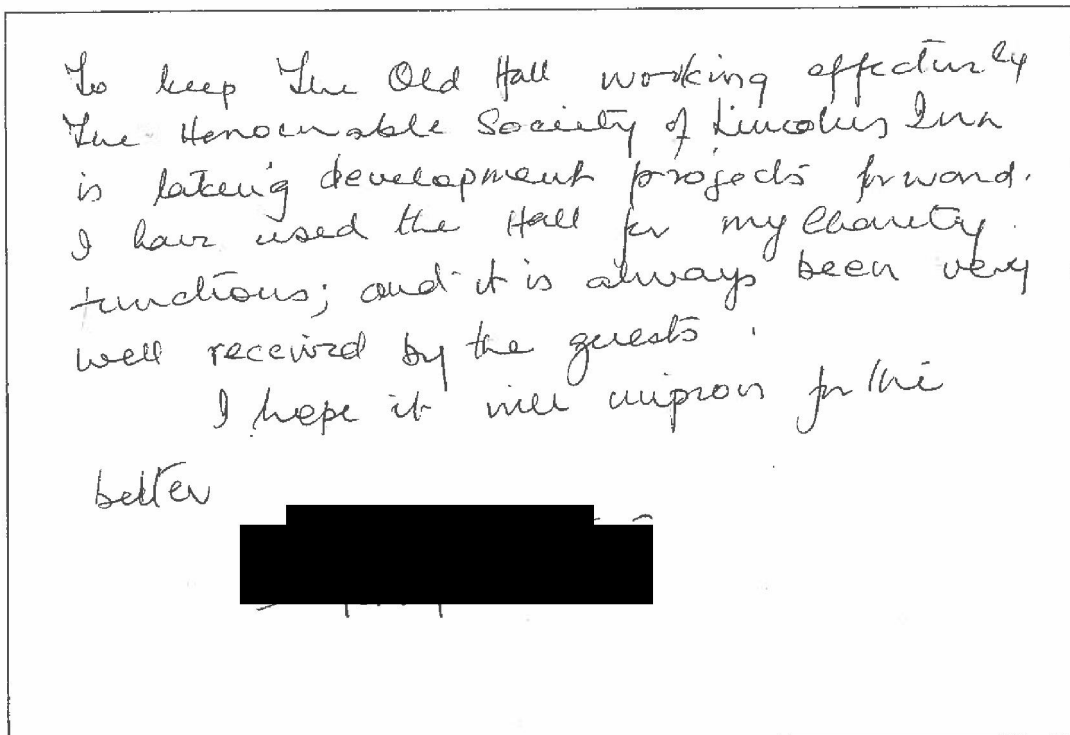 To keep The Old Hall working effectively
The Honourable Society of Lincolns Inn
is taking development projects forward.
I have used the Hall for my Charity
functions; and it is always been very
well received by the guests.
I hope it will improve for the
better